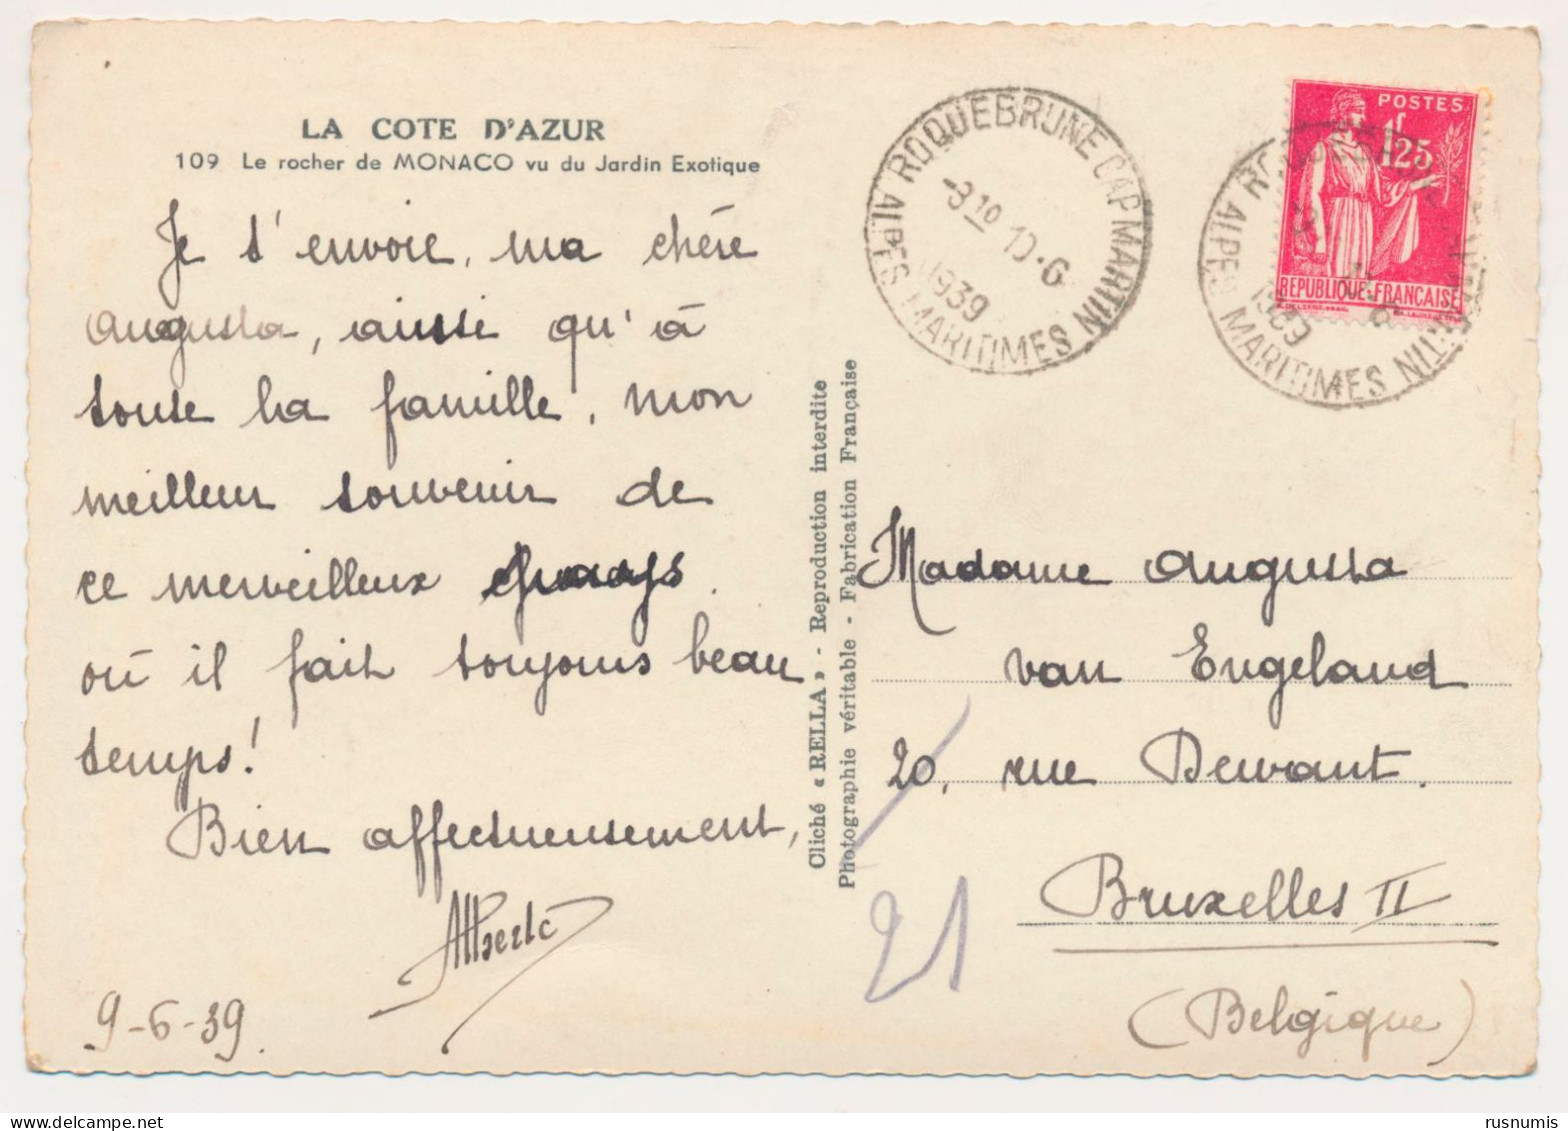 LA COTE D'AZUR
109 Le rocher de MONACO vu du Jardin Exotique
Je t'envoie, ma chère
Augusta, ainsi qu'à
toute ta famille, mon
meilleur souvenir de
ce merveilleux pays
où il fait toujours beau
temps!
Bien affectueusement,
9-6-39.
Cliché « RELLA » - Reproduction interdite
Photographie véritable - Fabrication Française
ROQUEBRUNE CAP MARTIN
-8 10 10-6
1939
ALPES MARITIMES
POSTES
1F25
REPUBLIQUE-FRANÇAISE
1939
ALPES MARITIMES
Madame Augusta
van Engeland
20, rue Dewant.
21
Bruxelles II
(Belgique)
rusnumis